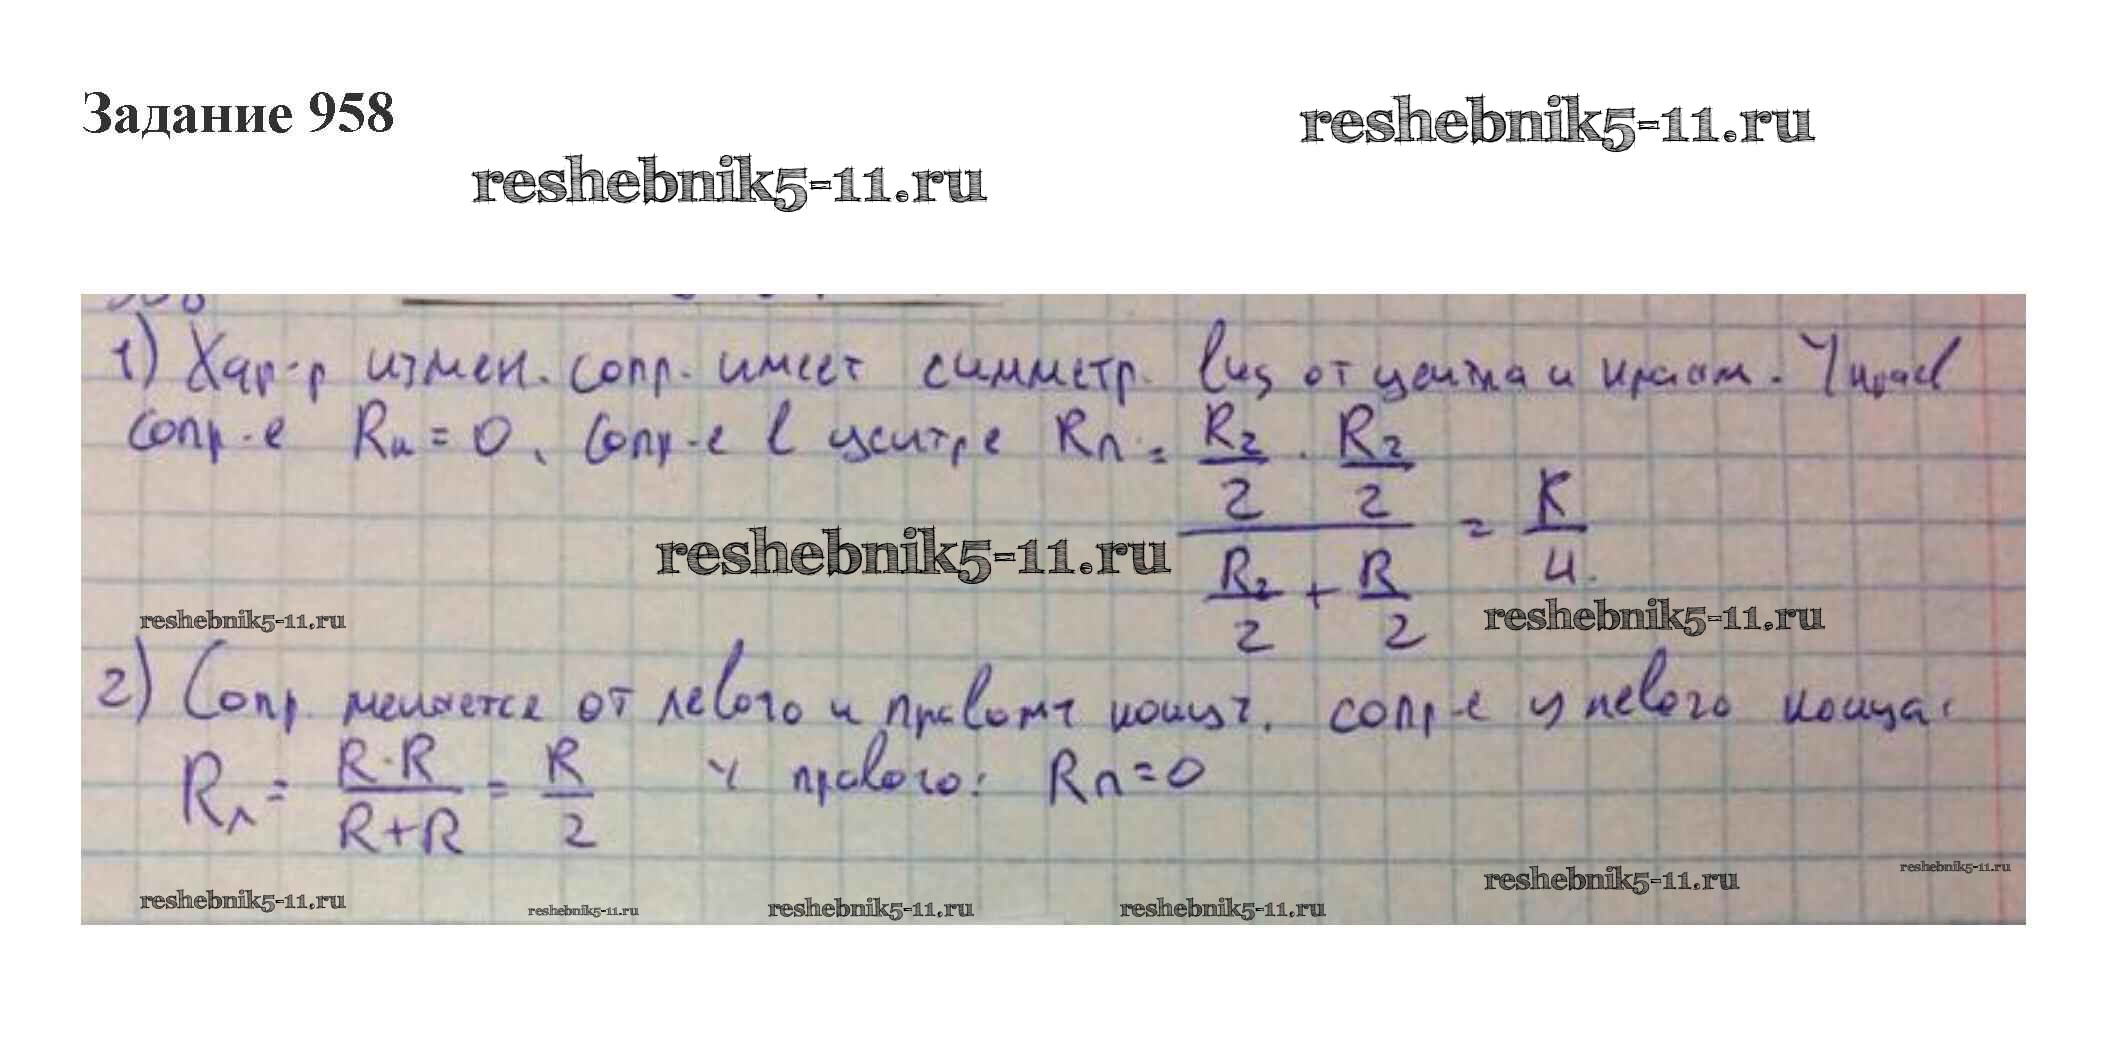 Задание 958
reshebnik5-11.ru
reshebnik5-11.ru
1) Хар-р измен. сопр. имеет симметр. вид от центра и краям. У краев
сопр-е Rк = 0, сопр-е в центре Rп = (R2/2 · R2/2)/(R2/2 + R/2) = R/4.
reshebnik5-11.ru
reshebnik5-11.ru
reshebnik5-11.ru
2) Сопр. меняется от левого и правому концу. сопр-е у левого конца:
Rл = R·R/R+R = R/2 У правого: Rп = 0
reshebnik5-11.ru
reshebnik5-11.ru
reshebnik5-11.ru
reshebnik5-11.ru
reshebnik5-11.ru
reshebnik5-11.ru